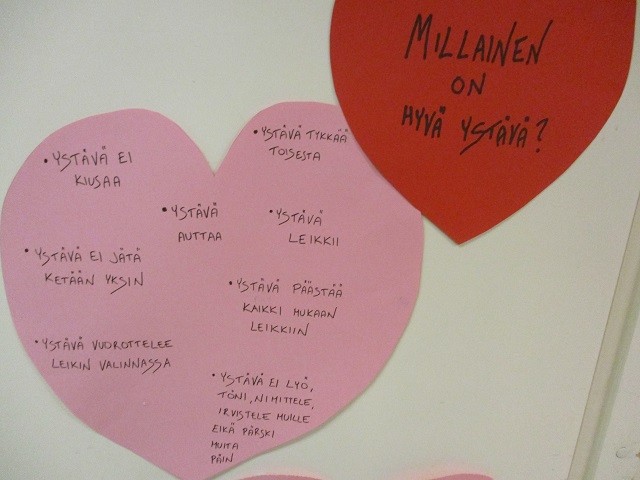 MILLAINEN
ON
HYVÄ YSTÄVÄ?
• YSTÄVÄ EI
KIUSAA
• YSTÄVÄ TYKKÄÄ
TOISESTA
• YSTÄVÄ
AUTTAA
• YSTÄVÄ
LEIKKII
• YSTÄVÄ EI JÄTÄ
KETÄÄN YKSIN
• YSTÄVÄ PÄÄSTÄÄ
KAIKKI MUKAAN
LEIKKIIN
• YSTÄVÄ VUOROTTELEE
LEIKIN VALINNASSA
• YSTÄVÄ EI LYÖ,
TÖNI, NIMITTELE,
IRVISTELE MUILLE
EIKÄ PÄRSKI
MUITA
PÄIN